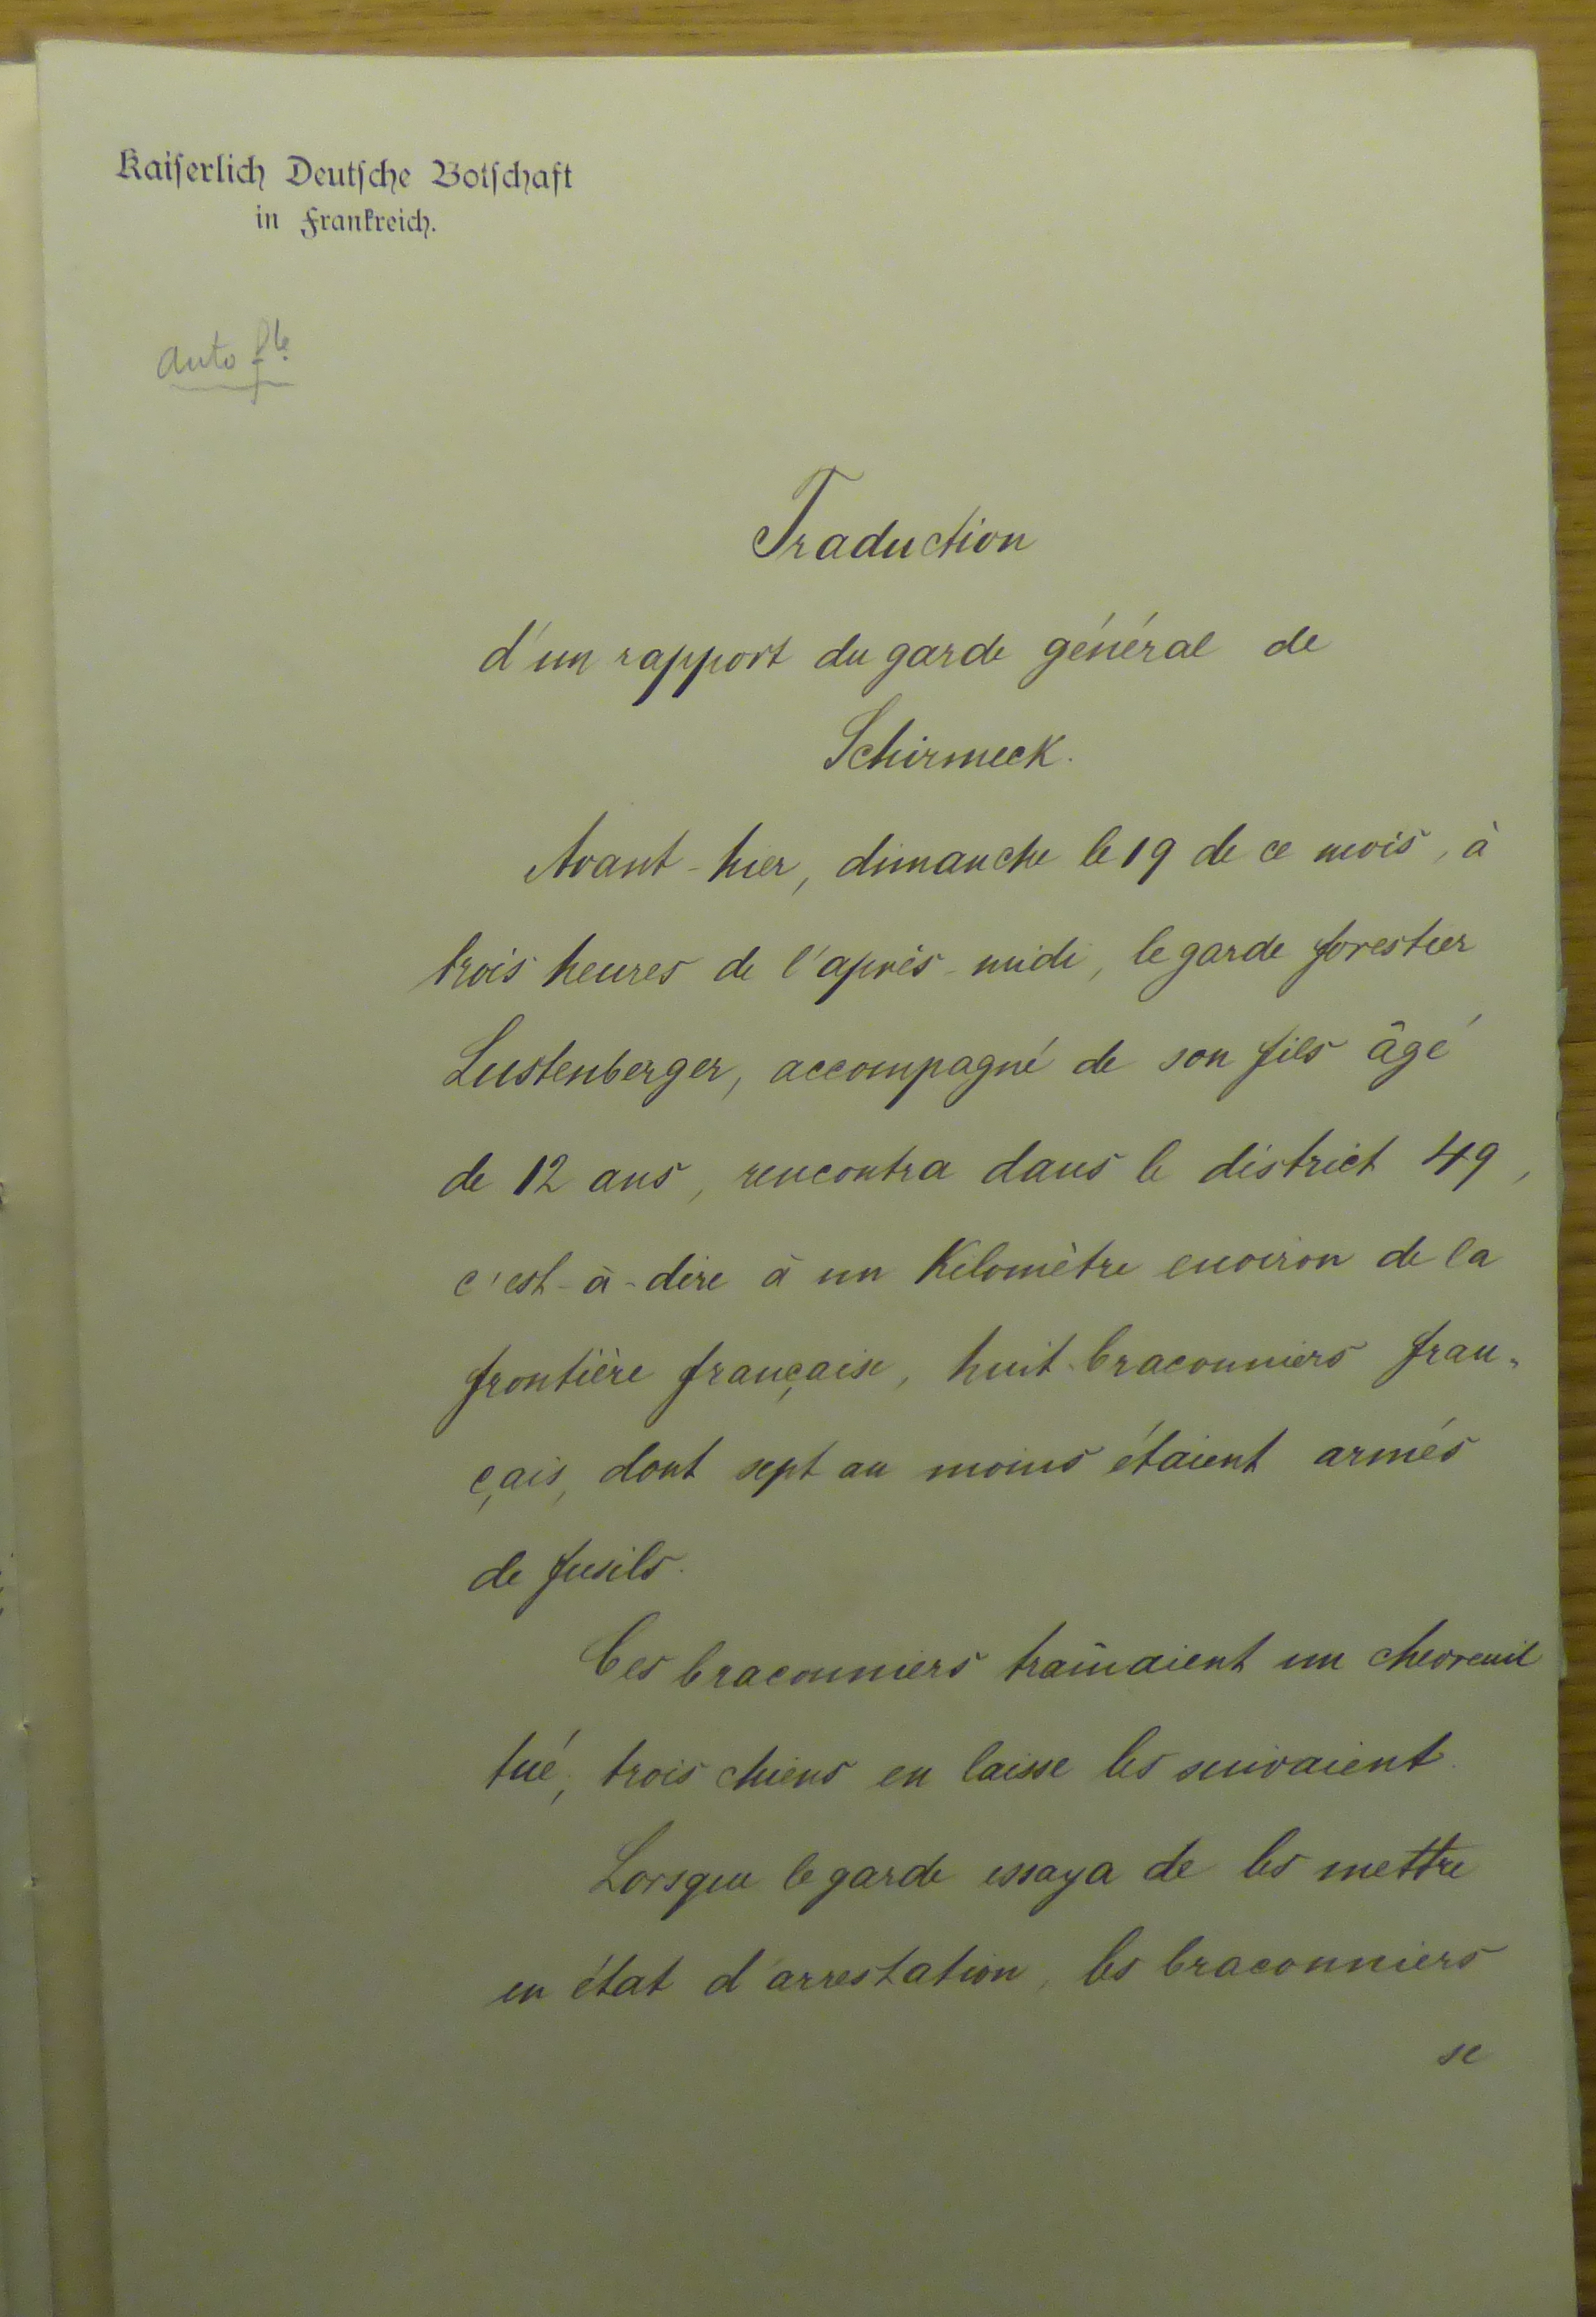 Kaiserlich Deutsche Botschaft
in Frankreich.
auto
Traduction
d'un rapport du garde général de
Schirmeck.
Avant-hier, dimanche le 19 de ce mois, à
trois heures de l'après-midi, le garde forestier
Lustenberger, accompagné de son fils âgé
de 12 ans, rencontra dans le district 49,
c'est-à-dire à un Kilomètre environ de la
frontière française, huit braconniers fran-
çais, dont sept au moins étaient armés
de fusils.
Ces braconniers traînaient un chevreuil
tué, trois chiens en laisse les suivaient.
Lorsque le garde essaya de les mettre
en état d'arrestation, les braconniers
se